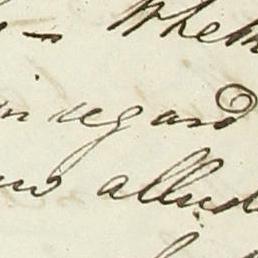 Wheth
in regard
allud